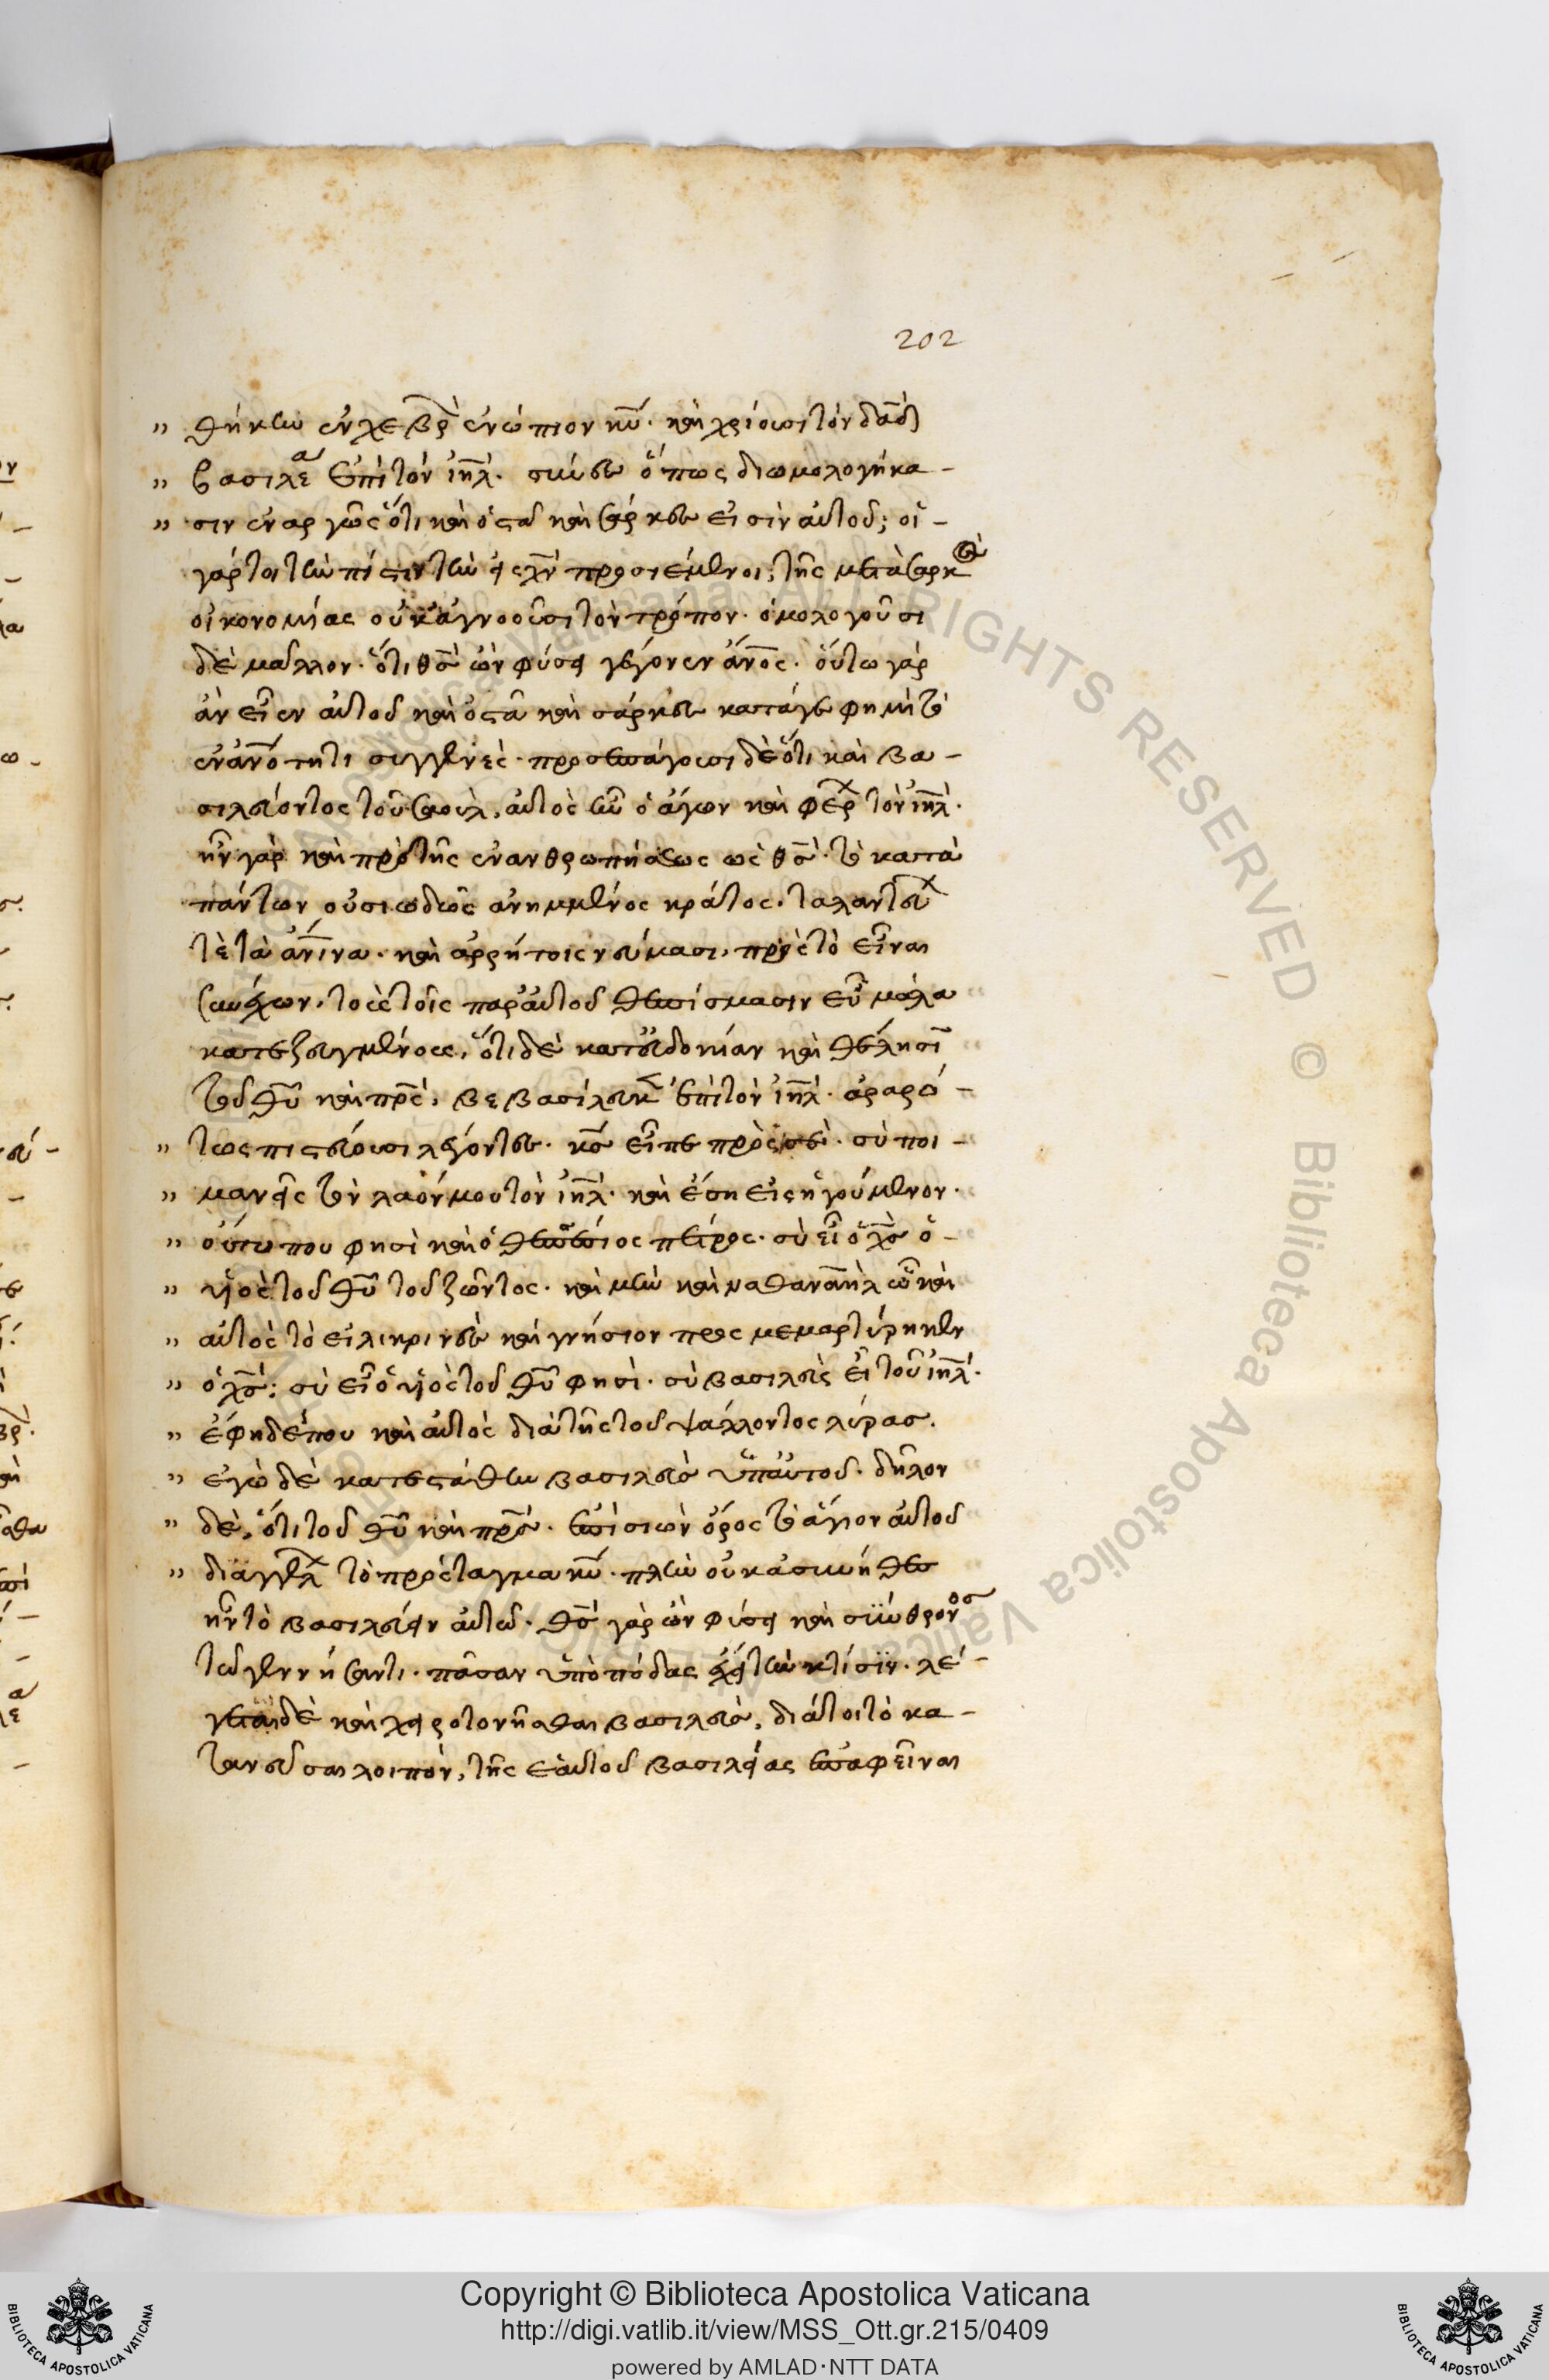 202
" θήκην ἐν χεβρ ἐνώπιον κυ̅. καὶ χρίουσι τὸν δα̅δ
" βασιλέα ἐπὶ τὸν ἰη̅λ. συνίης ὅπως διωμολογήκα-
" σιν ἐναργῶς ὅτι καὶ ὀστᾶ καὶ σάρκες εἰσὶν αὐτοῦ; οἱ-
γάρτοι τὴν πίστιν τὴν εἰς χν̅ προσιέμενοι, τῆς μετὰ σαρκὸς
οἰκονομίας οὐκ ἀγνοοῦσι τὸν τρόπον. ὁμολογοῦσι
δὲ μᾶλλον. ὅτι θς̅ ὢν φύσει γέγονεν ἄνο̅ς. οὕτω γὰρ
ἂν εἶεν αὐτοῦ καὶ ὀστᾶ καὶ σάρκες κατάγε φημὶ τὸ
ἐν ἀνο̅τητι συγγενές. προσεπάγουσι δὲ ὅτι καὶ βα-
σιλεύοντος τοῦ σαοὺλ, αὐτὸς ἦν ὁ ἄγων καὶ φέρ τὸν ἰη̅λ.
ἦν γὰρ καὶ πρὸ τῆς ἐνανθρωπήσεως ὡς θς̅. τὸ κατὰ
πάντων οὐσιωδῶς ἀνημμένος κράτος. ταλαντεύ
τὲ τὰ ἀν̅ινα. καὶ ἀρρήτοις νεύμασι, πρὸς τὸ εἶναι
συνέχων, τοὺς τοῖς παρ' αὐτοῦ θεσπίσμασιν εὖ μάλα
κατεζευγμένους, ὅτι δὲ κατ' εὐδοκίαν καὶ θέλησι
τοῦ θυ̅ καὶ πρς̅, βεβασίλευκ ἐπὶ τὸν ἰη̅λ. ἀραρό-
" τως πιστεύουσι λέγοντες. κς̅ εἶπε πρὸς σέ. σὺ ποι-
" μανεῖς τὸν λαόν μου τὸν ἰη̅λ. καὶ ἔση εἰς ἡγούμενον.
" οὕτω που φησὶ καὶ ὁ θεσπέσιος πέτρος. σὺ εἶ ὁ χς̅ ὁ-
" υἱὸς τοῦ θυ̅ τοῦ ζῶντος. καὶ μὴν καὶ ναθαναὴλ ᾧ καὶ
" αὐτὸς τὸ εἰλικρινὲς καὶ γνήσιον πως μεμαρτύρηκεν
" ὁ χς̅; σὺ εἶ ὁ υἱὸς τοῦ θυ̅ φησὶ. σὺ βασιλεὺς εἶ τοῦ ἰη̅λ.
" ἔφη δέ που καὶ αὐτὸς διὰ τῆς τοῦ ψάλλοντος λύρας.
" ἐγὼ δὲ κατεστάθην βασιλεὺς ὑπ' αὐτοῦ. δῆλον
" δὲ, ὅτι τοῦ θυ̅ καὶ πρς̅. ἐπὶ σιὼν ὄρος τὸ ἅγιον αὐτοῦ
" διαγγέλ τὸ πρόσταγμα κυ̅. πλὴν οὐκ ἀσυνήθες
ἦν τὸ βασιλεύειν αὐτῶ. θς̅ γὰρ ὢν φύσει καὶ σύνθρονος
τῶ γεννήσαντι. πᾶσαν ὑπὸ πόδας ἔχει τὴν κτίσιν. λέ-
γεται δὲ καὶ χειροτονῆσθαι βασιλεὺς, διάτοι τὸ κα-
τανεῦσαι λοιπὸν, τῆς ἑαυτοῦ βασιλείας ἐπαφεῖναι
Copyright © Biblioteca Apostolica Vaticana
http://digi.vatlib.it/view/MSS_Ott.gr.215/0409
powered by AMLAD·NTT DATA